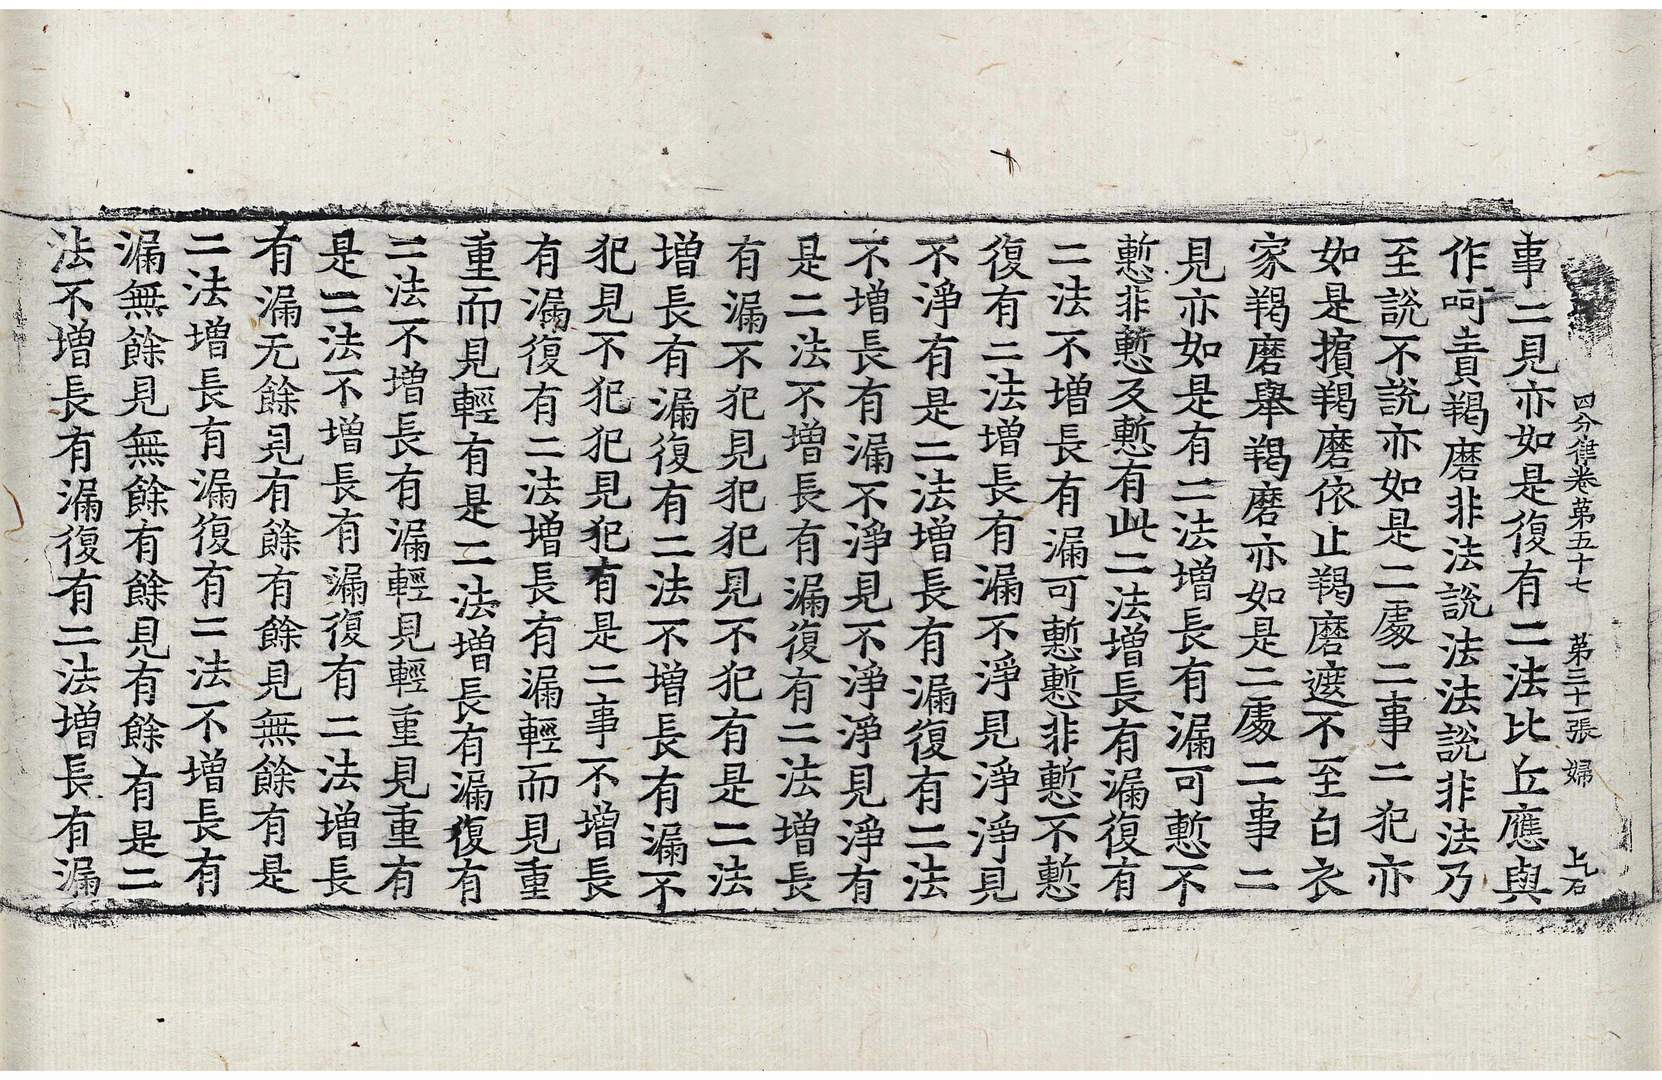 四分律卷第五十七 第三十一張 婦
事二見亦如是復有二法比丘應與
作呵責羯磨非法說法法說非法乃
至說不說亦如是二處二事二犯亦
如是擯羯磨依止羯磨遮不至白衣
家羯磨舉羯磨亦如是二處二事二
見亦如是有二法增長有漏可慙不
慙非慙及慙有此二法增長有漏復有
二法不增長有漏可慙慙非慙不慙
復有二法增長有漏不淨見淨淨見
不淨有是二法增長有漏復有二法
不增長有漏不淨見不淨淨見淨有
是二法不增長有漏復有二法增長
有漏不犯見犯犯見不犯有是二法
增長有漏復有二法不增長有漏不
犯見不犯犯見犯有是二事不增長
有漏復有二法增長有漏輕而見重
重而見輕有是二法增長有漏復有
二法不增長有漏輕見輕重見重有
是二法不增長有漏復有二法增長
有漏无餘見有餘有餘見無餘有是
二法增長有漏復有二法不增長有
漏無餘見無餘有餘見有餘有是二
法不增長有漏復有二法增長有漏